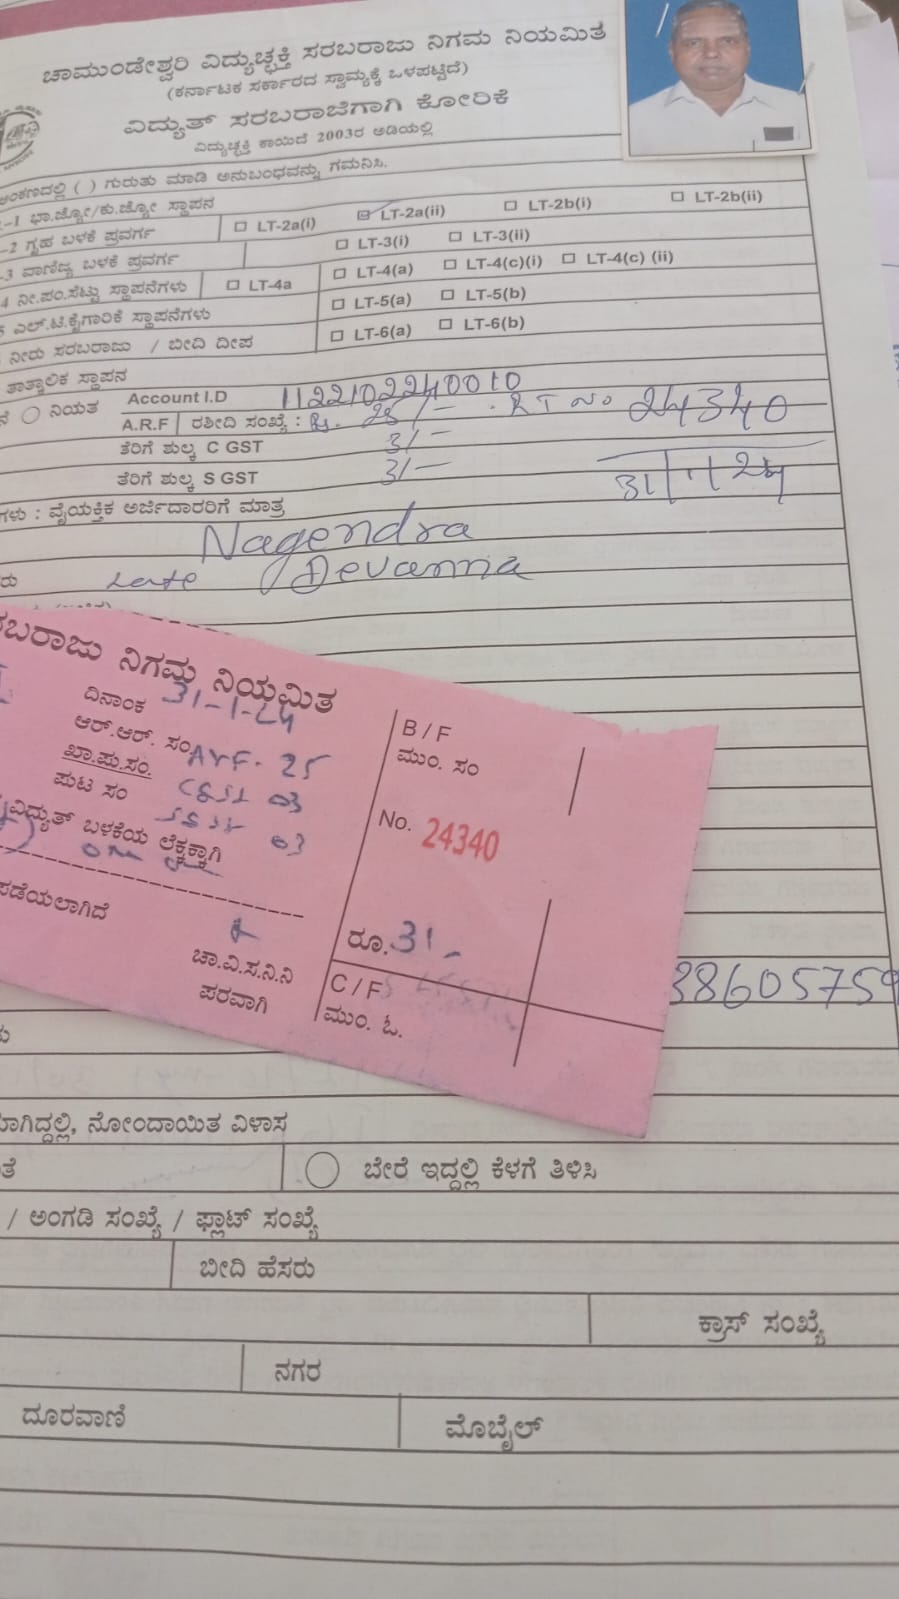 ಚಾಮುಂಡೇಶ್ವರಿ ವಿದ್ಯುಚ್ಛಕ್ತಿ ಸರಬರಾಜು ನಿಗಮ ನಿಯಮಿತ
(ಕರ್ನಾಟಕ ಸರ್ಕಾರದ ಸ್ವಾಮ್ಯಕ್ಕೆ ಒಳಪಟ್ಟಿದೆ)
ವಿದ್ಯುತ್ ಸರಬರಾಜಿಗಾಗಿ ಕೋರಿಕೆ
ವಿದ್ಯುಚ್ಛಕ್ತಿ ಕಾಯಿದೆ 2003ರ ಅಡಿಯಲ್ಲಿ
ಅಂಕಣದಲ್ಲಿ ( ) ಗುರುತು ಮಾಡಿ ಅನುಬಂಧವನ್ನು ಗಮನಿಸಿ.
-1 ಭಾ.ಜ್ಯೋ/ಕು.ಜ್ಯೋ ಸ್ಥಾಪನ
-2 ಗೃಹ ಬಳಕೆ ಪ್ರವರ್ಗ LT-2a(i) LT-2a(ii) LT-2b(i) LT-2b(ii)
-3 ವಾಣಿಜ್ಯ ಬಳಕೆ ಪ್ರವರ್ಗ LT-3(i) LT-3(ii)
4 ನೀ.ಪಂ.ಸೆಟ್ಟು ಸ್ಥಾಪನೆಗಳು LT-4a LT-4(a) LT-4(c)(i) LT-4(c) (ii)
ಎಲ್.ಟಿ.ಕೈಗಾರಿಕೆ ಸ್ಥಾಪನೆಗಳು LT-5(a) LT-5(b)
ನೀರು ಸರಬರಾಜು / ಬೀದಿ ದೀಪ LT-6(a) LT-6(b)
ತಾತ್ಕಾಲಿಕ ಸ್ಥಾಪನ
ನಿಯತ Account I.D 1122102240010
A.R.F ರಶೀದಿ ಸಂಖ್ಯೆ : Rs. 25/- RT No 24340
ತೆರಿಗೆ ಶುಲ್ಕ C GST 3/-
ತೆರಿಗೆ ಶುಲ್ಕ S GST 3/- 31/1/24
ಗಳು : ವೈಯಕ್ತಿಕ ಅರ್ಜಿದಾರರಿಗೆ ಮಾತ್ರ
Nagendra
Late Devanna
ಸರಬರಾಜು ನಿಗಮ ನಿಯಮಿತ
ದಿನಾಂಕ 31-1-24
ಆರ್.ಆರ್. ಸಂ. ARF. 25
ಖಾ.ಪು.ಸಂ. CGST 03
ಪುಟ ಸಂ SGST 03
ವಿದ್ಯುತ್ ಬಳಕೆಯ ಲೆಕ್ಕಕ್ಕಾಗಿ
ಪಡೆಯಲಾಗಿದೆ
ಚಾ.ವಿ.ಸ.ನಿ.ನಿ
ಪರವಾಗಿ
B / F
ಮುಂ. ಸಂ
No. 24340
ರೂ. 31-
C / F
ಮುಂ. ಓ.
38605759
ವಾಗಿದ್ದಲ್ಲಿ, ನೋಂದಾಯಿತ ವಿಳಾಸ
ಬೇರೆ ಇದ್ದಲ್ಲಿ ಕೆಳಗೆ ತಿಳಿಸಿ
/ ಅಂಗಡಿ ಸಂಖ್ಯೆ / ಫ್ಲಾಟ್ ಸಂಖ್ಯೆ
ಬೀದಿ ಹೆಸರು
ಕ್ರಾಸ್ ಸಂಖ್ಯೆ
ನಗರ
ದೂರವಾಣಿ ಮೊಬೈಲ್